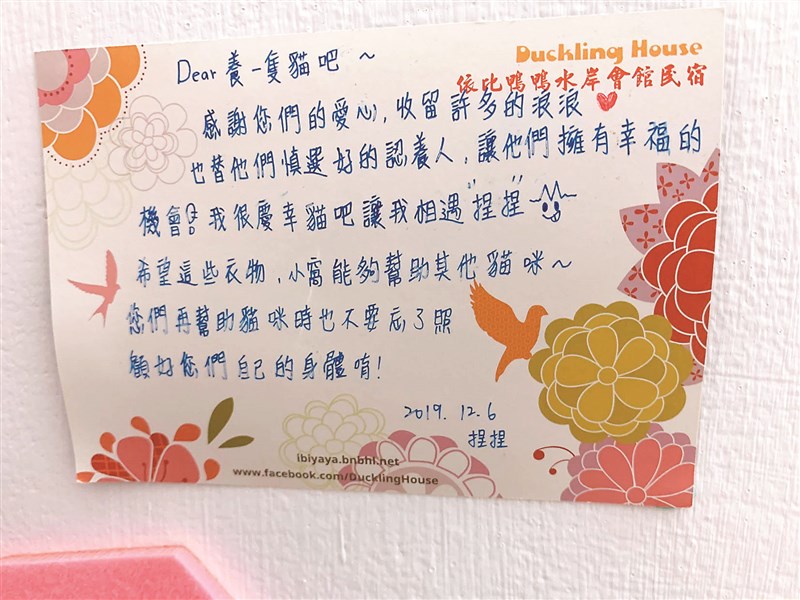 Duckling House
依比鴨鴨水岸會館民宿
Dear 養一隻貓吧 ~
感謝您們的愛心, 收留許多的浪浪
也替他們慎選好的認養人, 讓他們擁有幸福的
機會! 我很慶幸貓吧讓我相遇"捏捏"
希望這些衣物, 小窩能夠幫助其他貓咪~
您們再幫助貓咪時也不要忘了照
顧好您們自己的身體唷!
2019. 12. 6
捏捏
ibiyaya.bnbhl.net
www.facebook.com/DucklingHouse